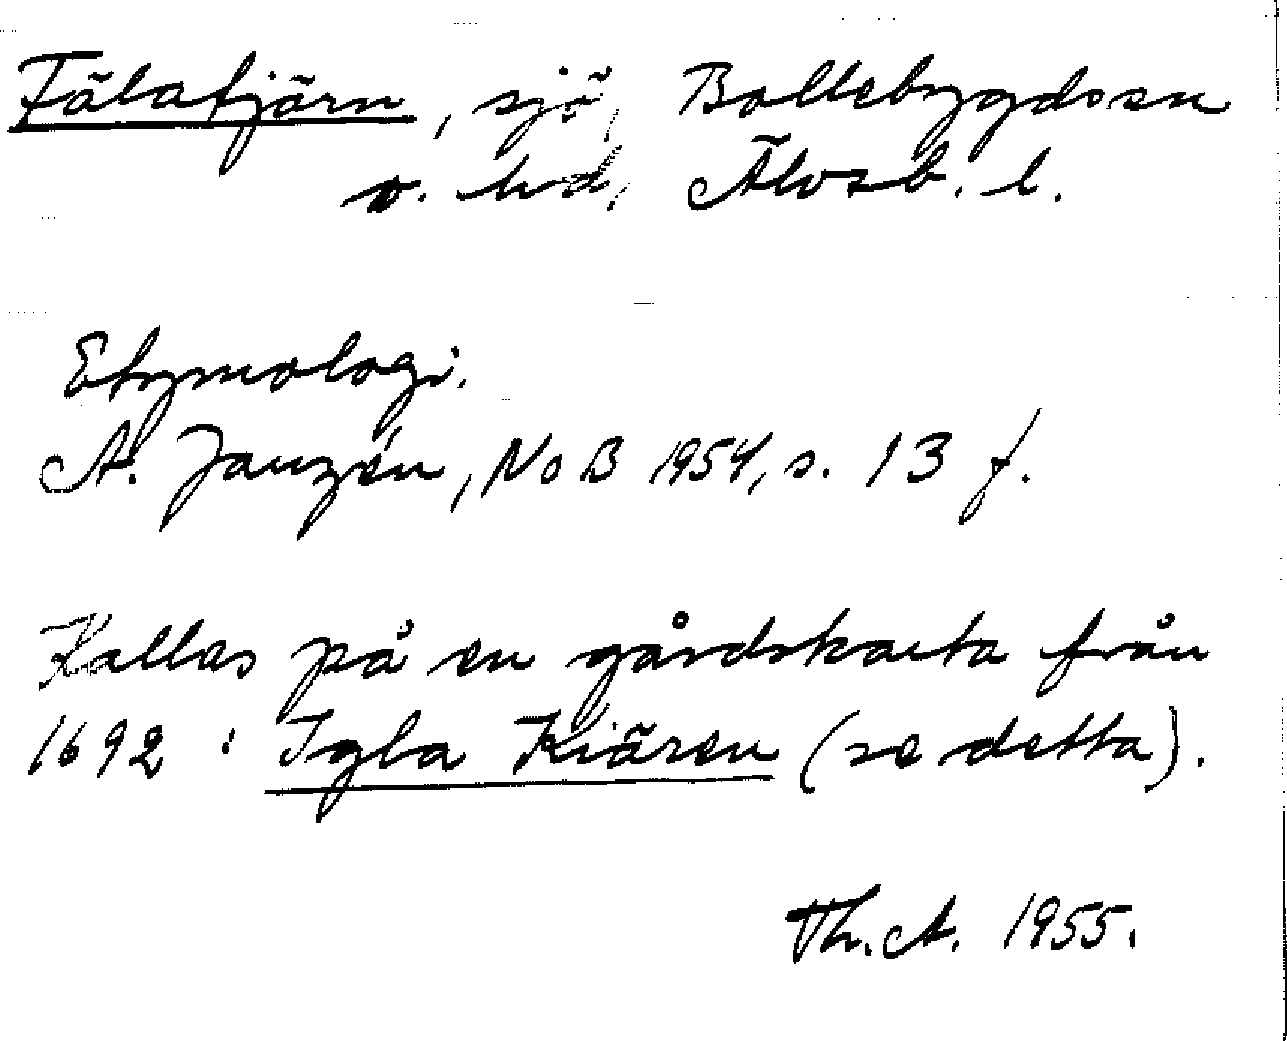 Fälatjärn, sjö, Bollebygds sn
o. hd, Älvsb. l.
Etymologi.
A. Janzén, NoB 1954, s. 13 f.
Kallas på en gårdskarta från
1692: Igla Kiären (se detta).
Th. A. 1955.